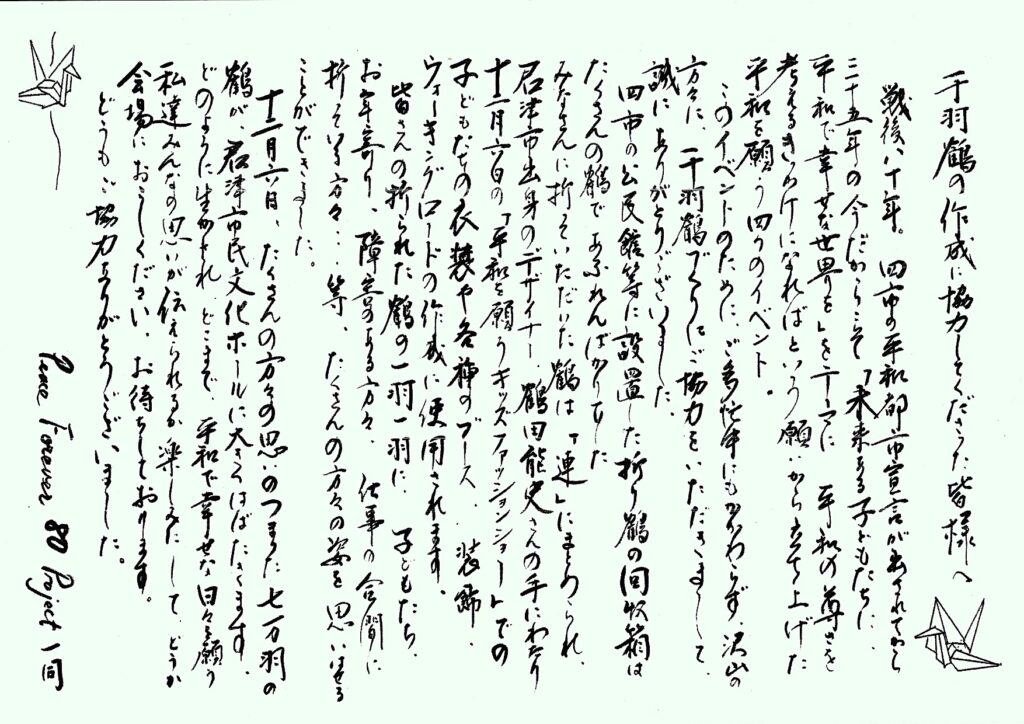 千羽鶴の作成に協力してくださった皆様へ
戦後八十年。四市の平和都市宣言が出されてから
三十五年の今だからこそ「未来ある子どもたちに
平和で幸せな世界を」をテーマに 平和の尊さを
考えるきっかけになればという願いから立ち上げた
平和を願う四つのイベント。
このイベントのために、ご多忙中にもかかわらず、沢山の
方々に、千羽鶴づくりにご協力をいただきまして、
誠にありがとうございました。
四市の公民館等に設置した折り鶴の回収箱は
たくさんの鶴で、あふれんばかりでした
みなさんに折っていただいた鶴は「連」にまとめられ、
君津市出身のデザイナー、鶴田能史さんの手にわたり
十二月六日の「平和を願うキッズファッションショー」での
子どもたちの衣装や各種のブース、装飾、
ウォーキングロードの作成に使用されます。
皆さんの折られた鶴の一羽一羽に、子どもたち、
お年寄り、障害のある方々、仕事の合間に
折っている方々…等、たくさんの方々の姿を思いはせる
ことができました。
十二月六日、たくさんの方々の思いのつまった七万羽の
鶴が、君津市民文化ホールに大きくはばたきます。
どのように生かされ、どこまで、平和で幸せな日々を願う
私達みんなの思いが伝えられるか楽しみにして、どうか
会場におこしください。お待ちしております。
どうもご協力ありがとうございました。
Peace Forever 80 Project 一同